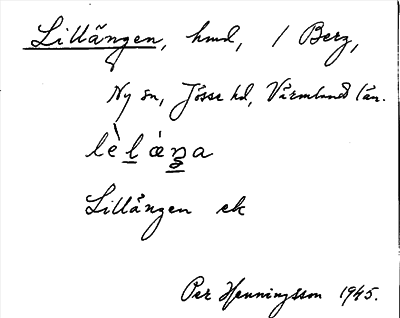 Lillängen, hmd, / Berg,
Ny sn, Jösse hd, Värmlands län.
lèl̲àn̲a
Lillängen ek
Per Henningsson 1945.